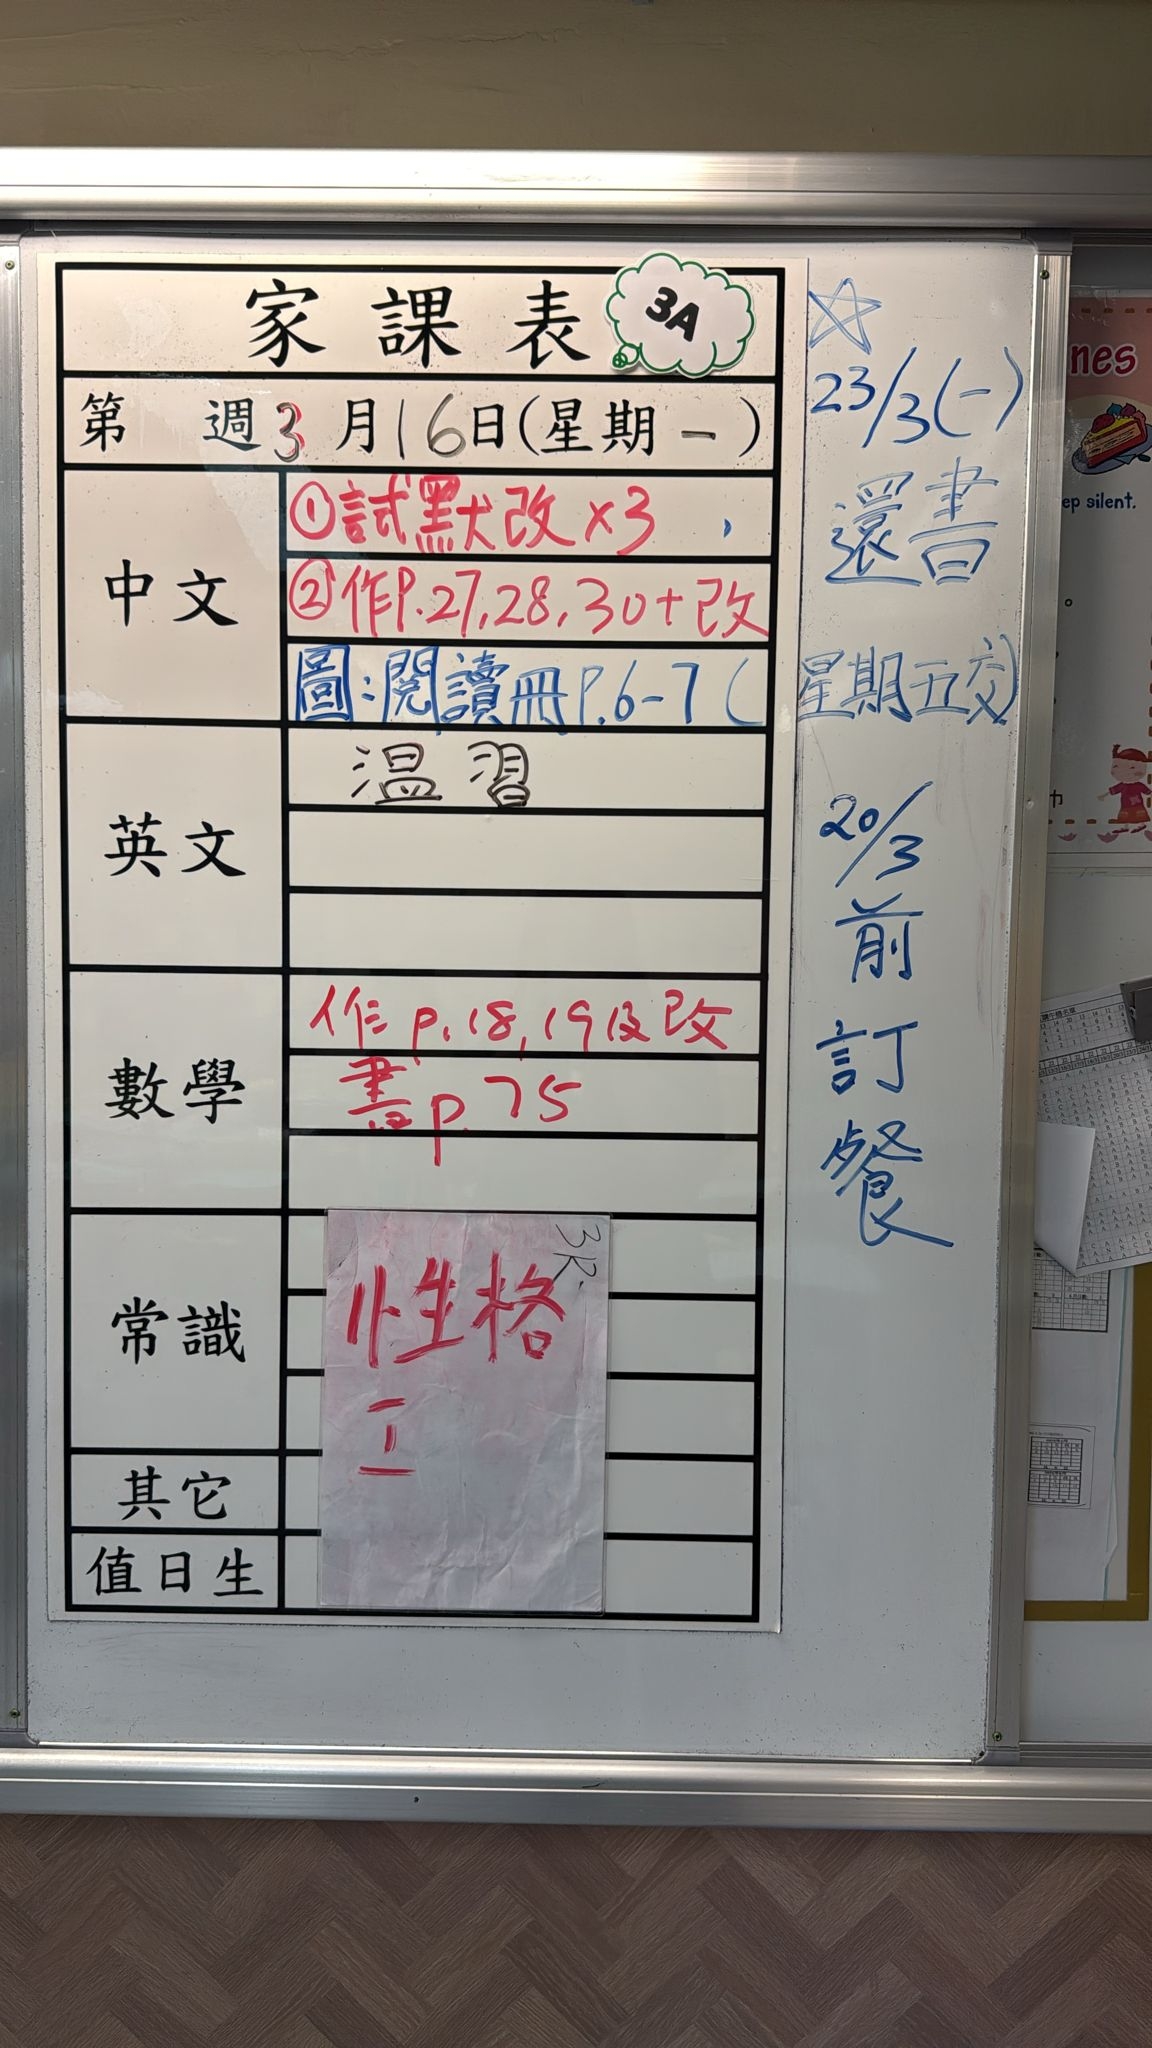 家課表 3A
第 週3月16日(星期一)
中文
①試默改×3
②作P.27,28,30+改
圖:閱讀冊P.6-7(星期五交)
英文
温習
數學
作p.18,19及改
書p.75
常識
其它
值日生
性格
工
☆
23/3(一)
還書
20/3
前
訂
餐
nes
ep silent.